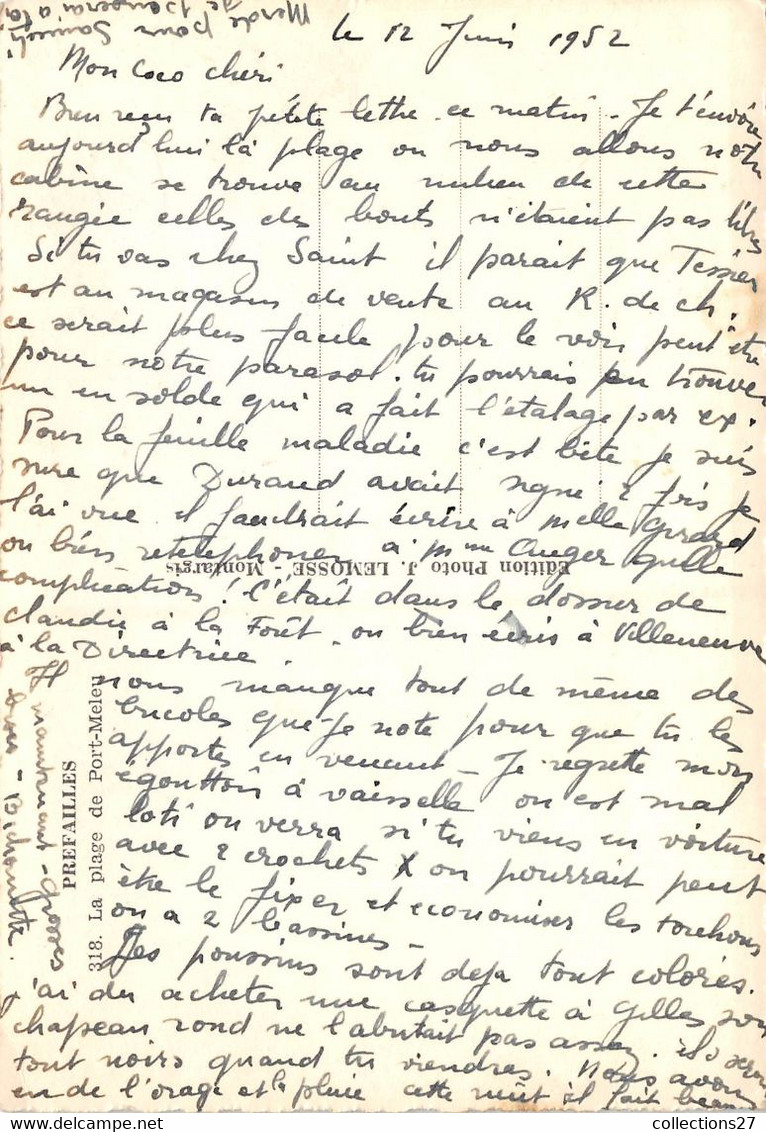 le 12 Juin 1952
Mon Coco chéri
Bien reçu ta petite lettre ce matin. Je t'envoie
aujourd'hui la plage où nous allons notre
cabine se trouve au milieu de cette
rangée celles des bouts n'étaient pas libres
Si tu vas chez Saint il parait que Tessier
est au magasin de vente au R. de ch.
ce serait plus facile pour le voir peut être
pour notre parasol. tu pourrais en trouver
un en solde qui a fait l'étalage par ex.
Pour la feuille maladie c'est bête je suis
sure que Durand avait signé 2 fois je
l'ai vue il faudrait écrire à Melle Girard
ou bien retelephoner à Mme Auger quelle
complication! C'était dans le dossier de
Claudie à la Forêt. ou bien écris à Villeneuve
à la Directrice.
Il nous manque tout de même des
bricoles que je note pour que tu les
apportes en venant - Je regrette mon
égouttoir à vaisselle on est mal
loti on verra si tu viens en voiture
avec 2 crochets X on pourrait peut
être le fixer et économiser les torchons
on a 2 bassines -
Les poussins sont deja tout colorés.
j'ai du acheter une casquette à Gilles son
chapeau rond ne l'abritait pas assez. ils seront
tout noirs quand tu viendras. Nous avons
eu de l'orage et la pluie cette nuit il fait beau
maintenant - Grosses
bises - Bichounette.
Merde pour Samedi
je penserai à toi
Edition Photo J. LEMOSSE - Montargis
PREFAILLES
318. La plage de Port-Meleu
collections27